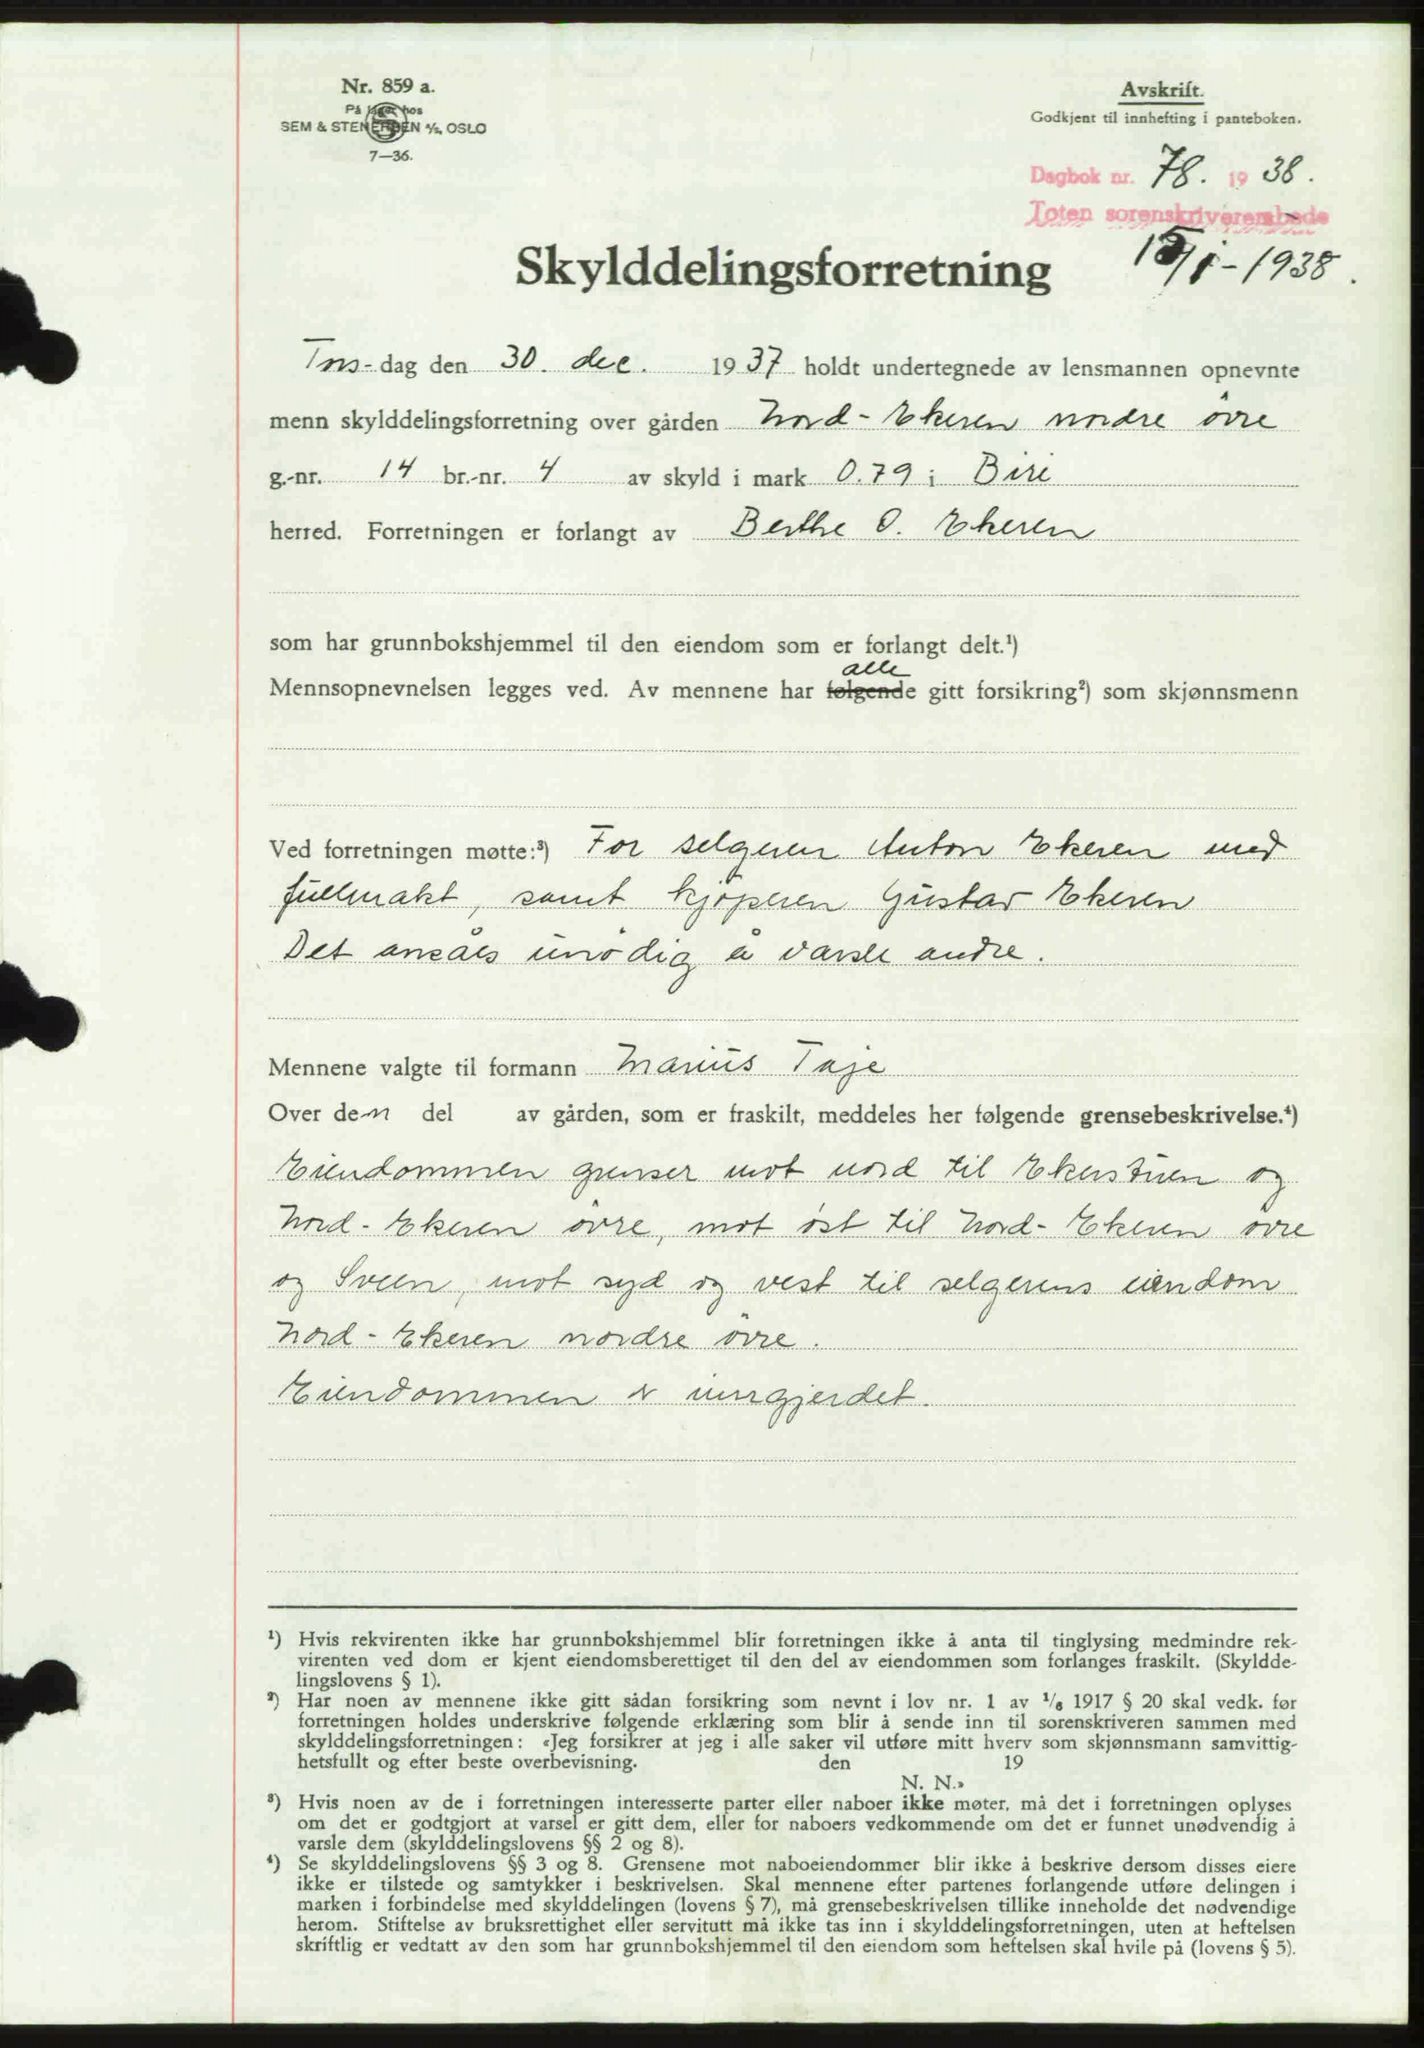 Nr. 859 a.
På lager hos
SEM & STENERSEN A/S, OSLO
7—36.
Avskrift.
Godkjent til innhefting i panteboken.
Dagbok nr. 78. 1938.
Toten sorenskriverembede
15/1-1938.
Skylddelingsforretning
Tors-dag den 30. dec. 1937 holdt undertegnede av lensmannen opnevnte
menn skylddelingsforretning over gården Nord-Ekeren nordre övre
g.-nr. 14 br.-nr. 4 av skyld i mark 0.79 i Biri
herred. Forretningen er forlangt av Berthe O. Ekeren
som har grunnbokshjemmel til den eiendom som er forlangt delt.¹)
alle
Mennsopnevnelsen legges ved. Av mennene har følgende gitt forsikring²) som skjønnsmenn
Ved forretningen møtte:³) For selgeren Anton Ekeren med
fullmakt, samt kjöperen Gustav Ekeren
Det ansåes unödig å varsle andre.
Mennene valgte til formann Marius Taje
Over de-n del av gården, som er fraskilt, meddeles her følgende grensebeskrivelse.⁴)
Eiendommen grenser mot nord til Ekerstuen og
Nord-Ekeren övre, mot öst til Nord-Ekeren övre
og Sveen, mot syd og vest til selgerens eiendom
Nord-Ekeren nordre övre.
Eiendommen er inngjerdet.
¹) Hvis rekvirenten ikke har grunnbokshjemmel blir forretningen ikke å anta til tinglysing medmindre rek-
virenten ved dom er kjent eiendomsberettiget til den del av eiendommen som forlanges fraskilt. (Skyldde-
lingslovens § 1).
²) Har noen av mennene ikke gitt sådan forsikring som nevnt i lov nr. 1 av 1/6 1917 § 20 skal vedk. før
forretningen holdes underskrive følgende erklæring som blir å sende inn til sorenskriveren sammen med
skylddelingsforretningen: «Jeg forsikrer at jeg i alle saker vil utføre mitt hverv som skjønnsmann samvittig-
hetsfullt og efter beste overbevisning. den 19
N. N.»
³) Hvis noen av de i forretningen interesserte parter eller naboer ikke møter, må det i forretningen oplyses
om det er godtgjort at varsel er gitt dem, eller for naboers vedkommende om det er funnet unødvendig å
varsle dem (skylddelingslovens §§ 2 og 8).
⁴) Se skylddelingslovens §§ 3 og 8. Grensene mot naboeiendommer blir ikke å beskrive dersom disses eiere
ikke er tilstede og samtykker i beskrivelsen. Skal mennene efter partenes forlangende utføre delingen i
marken i forbindelse med skylddelingen (lovens § 7), må grensebeskrivelsen tillike inneholde det nødvendige
herom. Stiftelse av bruksrettighet eller servitutt må ikke tas inn i skylddelingsforretningen, uten at heftelsen
skriftlig er vedtatt av den som har grunnbokshjemmel til den eiendom som heftelsen skal hvile på (lovens § 5).